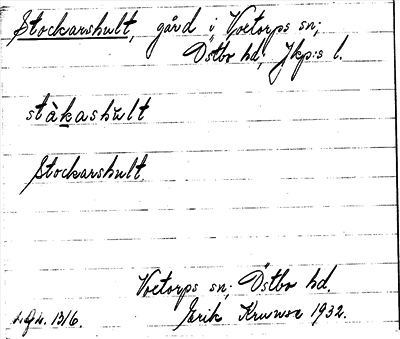 Stockarshult, gård i Voxtorps sn;
Östbo hd, Jkp:s l.
stàkashult
Stockarshult.
Voxtorps sn; Östbo hd.
Erik 1932.
1316.